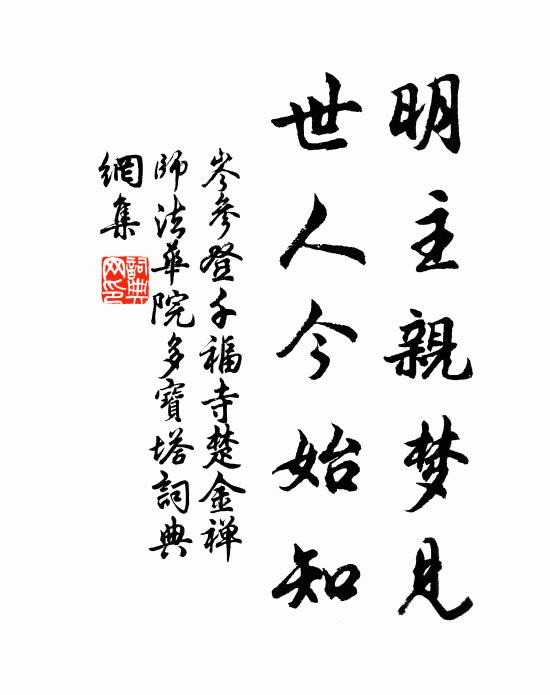 明主親梦見
世人今始知
岑參登千福寺楚金禅
師法華院多寶塔詞典
網集
詞典网印